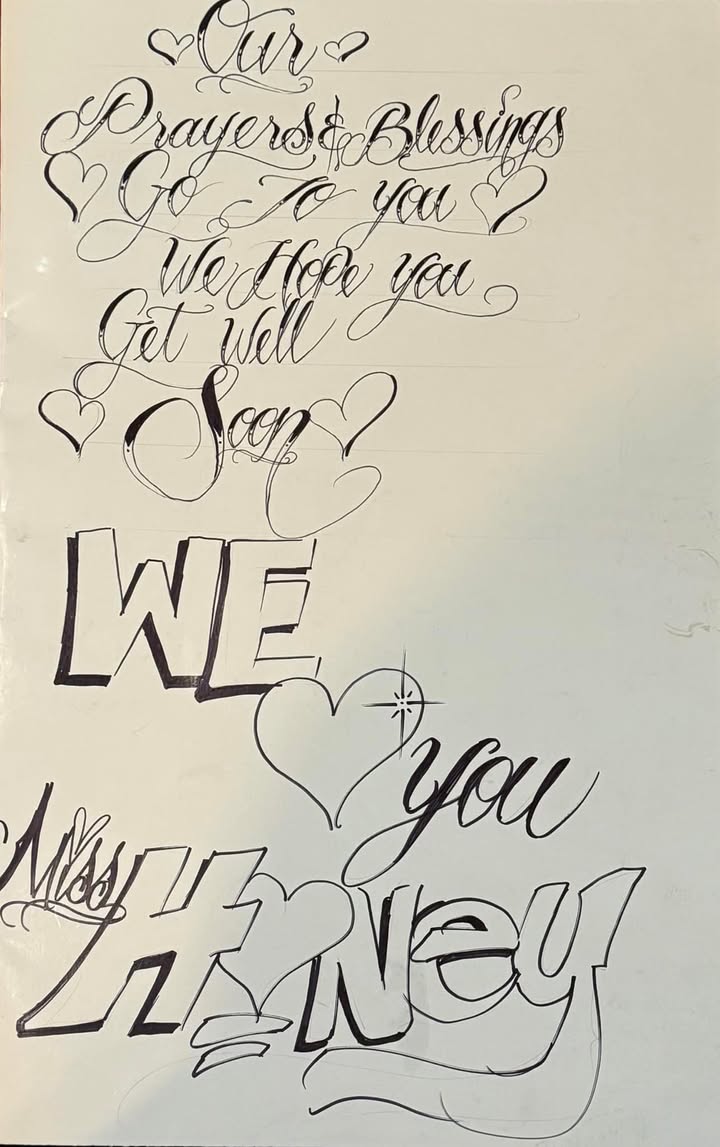 Our
Prayers & Blessings
Go To you
We Hope you
Get Well
Soon
WE
you
Miss
HoNey